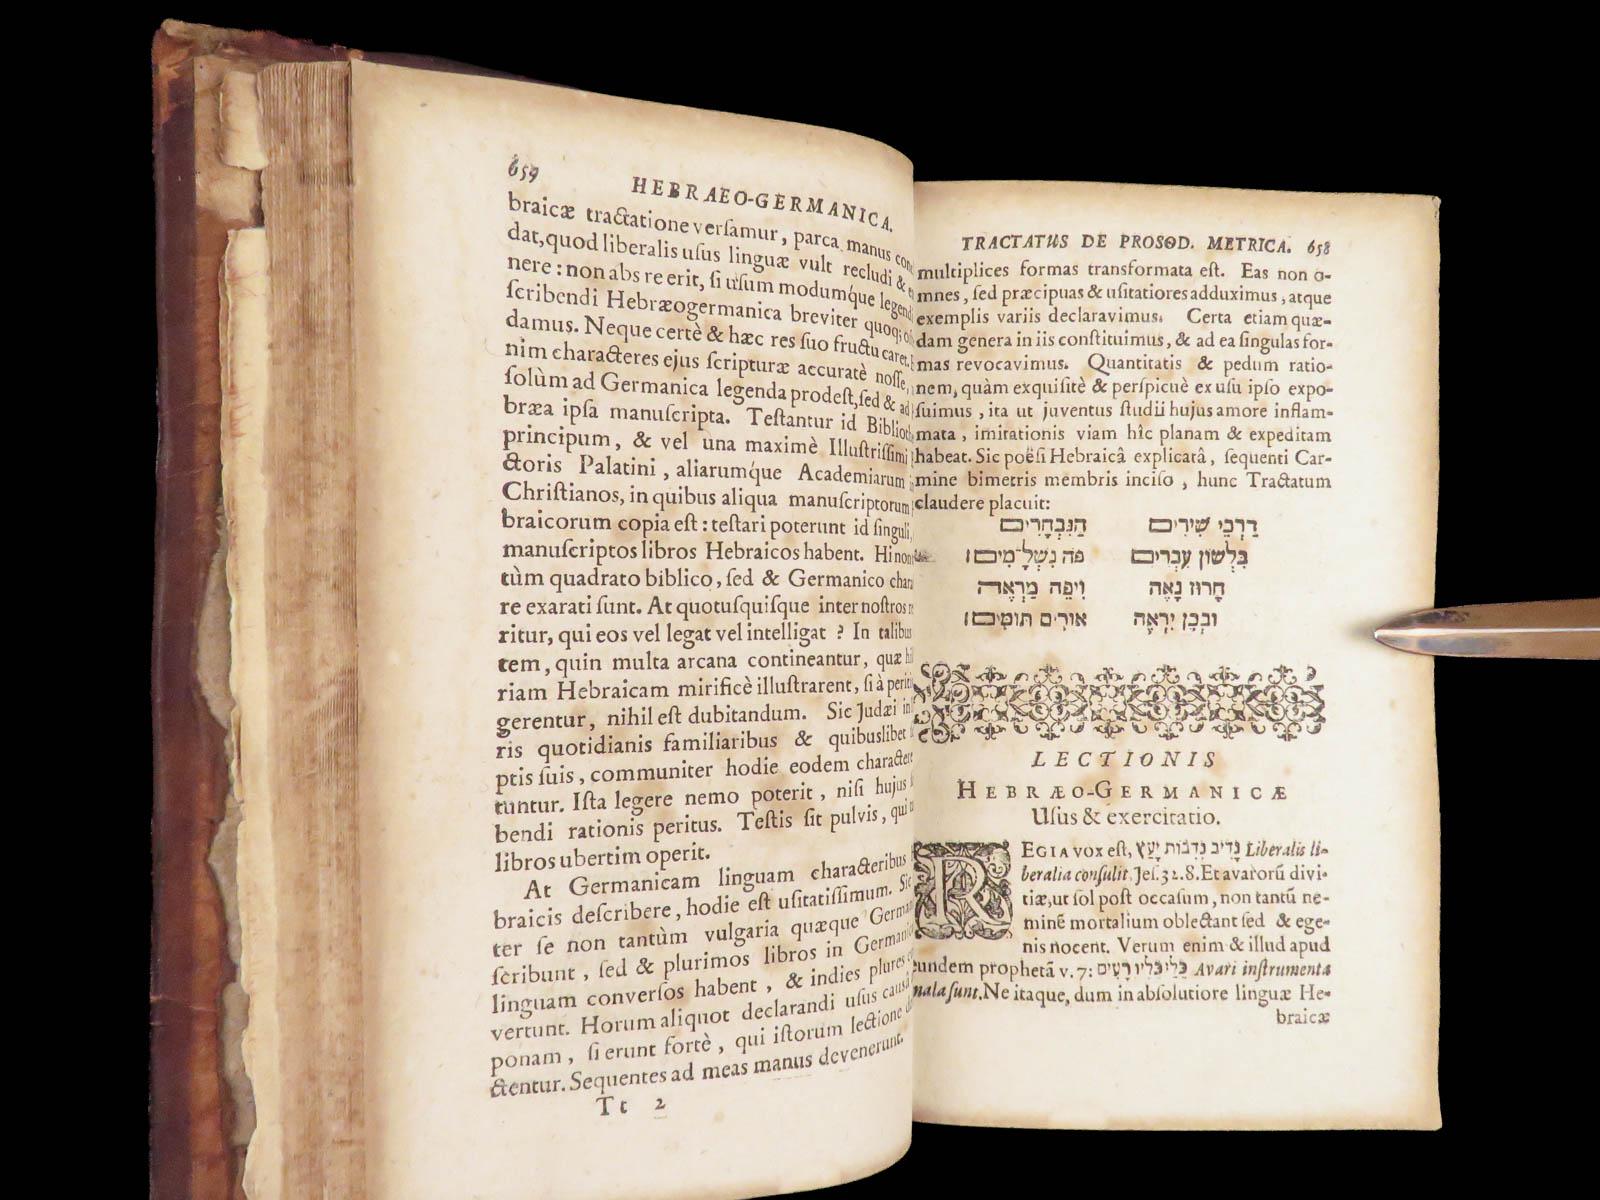 TRACTATUS DE PROSOD. METRICA. 658
multiplices formas transformata eſt. Eas non o-
mnes, ſed præcipuas & uſitatiores adduximus, atque
exemplis variis declaravimus. Certa etiam quæ-
dam genera in iis conſtituimus, & ad ea ſingulas for-
mas revocavimus. Quantitatis & pedum ratio-
nem, quàm exquiſitè & perſpicuè ex uſu ipſo expo-
ſuimus, ita ut juventus ſtudii hujus amore inflam-
mata, imitationis viam hîc planam & expeditam
habeat. Sic poëſi Hebraicâ explicatâ, ſequenti Car-
mine bimetris membris inciſo, hunc Tractatum
claudere placuit:
דַרְכֵי שִׁירִים הַנִּבְחָרִים
בִּלְשׁוֹן עִבְרִים פֹּה נִשְׁלָ־מִים׃
חָרוּז נָאֶה וִיפֵה מַרְאֶה
וּבְכֵן יִרְאֶה אוּרִים תּוּמִּים׃
LECTIONIS
HEBRÆO-GERMANICÆ
Uſus & exercitatio.
REGIA vox eſt, נָדִיב נְדִבוֹת יָעָץ Liberalis li-
beralia conſulit, Jeſ. 32. 8. Et avarorũ divi-
tiæ, ut ſol poſt occaſum, non tantũ ne-
minẽ mortalium oblectant ſed & ege-
nis nocent. Verum enim & illud apud
eundem prophetã v. 7: כֵּלַי כֵּלָיו רָעִים Avari inſtrumenta
mala ſunt. Ne itaque, dum in abſolutiore linguæ He-
braicæ
659 HEBRAEO-GERMANICA.
braicæ tractatione verſamur, parca manus
dat, quod liberalis uſus linguæ vult recludi &
nere: non abs re erit, ſi uſum modumq́ue
ſcribendi Hebræogermanica breviter quoq;
damus. Neque certè & hæc res ſuo fructu caret.
nim characteres ejus ſcripturæ accuratè noſſe,
ſolùm ad Germanica legenda prodeſt, ſed & ad
bræa ipſa manuſcripta. Teſtantur id
principum, & vel una maximè Illuſtriſſimi
ctoris Palatini, aliarumq́ue Academiarum
Chriſtianos, in quibus aliqua manuſcriptorum
braicorum copia eſt: teſtari poterunt id ſinguli,
manuſcriptos libros Hebraicos habent. Hi non
tùm quadrato biblico, ſed & Germanico
re exarati ſunt. At quotuſquiſque inter noſtros
ritur, qui eos vel legat vel intelligat? In talibus
tem, quin multa arcana contineantur, quæ
riam Hebraicam mirificè illuſtrarent, ſi à
gerentur, nihil eſt dubitandum. Sic Judæi in
ris quotidianis familiaribus & quibuslibet
ptis ſuis, communiter hodie eodem charactere
tuntur. Iſta legere nemo poterit, niſi hujus
bendi rationis peritus. Teſtis ſit pulvis, qui
libros ubertim operit.
At Germanicam linguam characteribus
braicis deſcribere, hodie eſt uſitatiſſimum. Sic
ter ſe non tantùm vulgaria quæque
ſcribunt, ſed & plurimos libros in
linguam converſos habent, & indies plures
vertunt. Horum aliquot declarandi uſus causâ
ponam, ſi erunt fortè, qui iſtorum lectione
ctentur. Sequentes ad meas manus devenerunt.
Tt 2